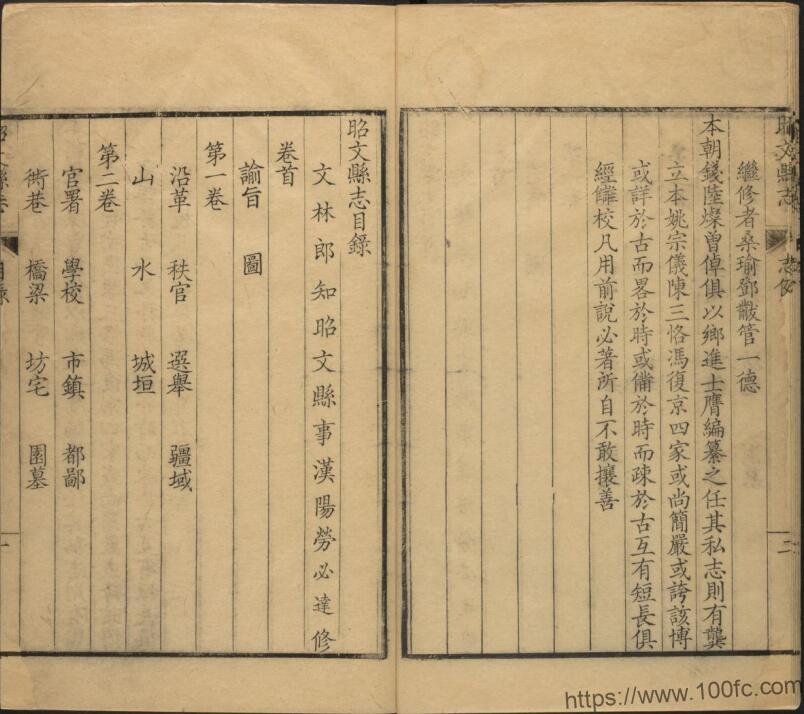 昭文縣志
志例
二
繼修者桑瑜鄧韍管一德
本朝錢陸燦曾倬俱以鄉進士膺編纂之任其私志則有龔
立本姚宗儀陳三恪馮復京四家或尚簡嚴或誇該博
或詳於古而畧於時或備於時而疎於古互有短長俱
經讎校凡用前說必著所自不敢攘善
昭文縣志目錄
文林郎知昭文縣事漢陽勞必達修
卷首
諭旨 圖
第一卷
沿革 秩官 選舉 疆域
山 水 城垣
第二卷
官署 學校 市鎮 都鄙
衖巷 橋梁 坊宅 園墓
昭文縣志
目錄
一
https://www.100fc.com